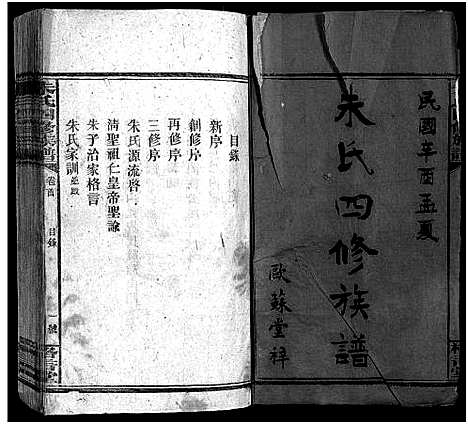 民國辛酉孟夏
朱氏四修族譜
歐蘇堂梓
目錄
新序
創修序
再修序
三修序
朱氏源流啓
清聖祖仁皇帝聖諭
朱子治家格言
朱氏家訓
朱氏四修族譜
卷首
目錄